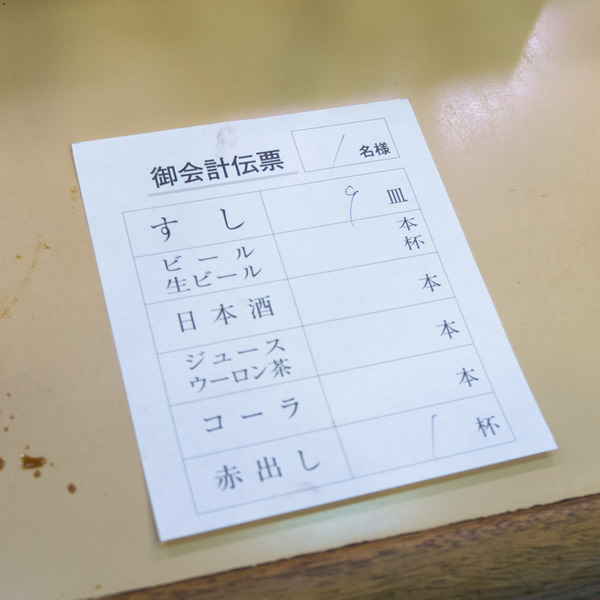 御会計伝票
1 名様
すし 9 皿
ビール 本
生ビール 杯
日本酒 本
ジュース
ウーロン茶 本
コーラ 本
赤出し 1 杯